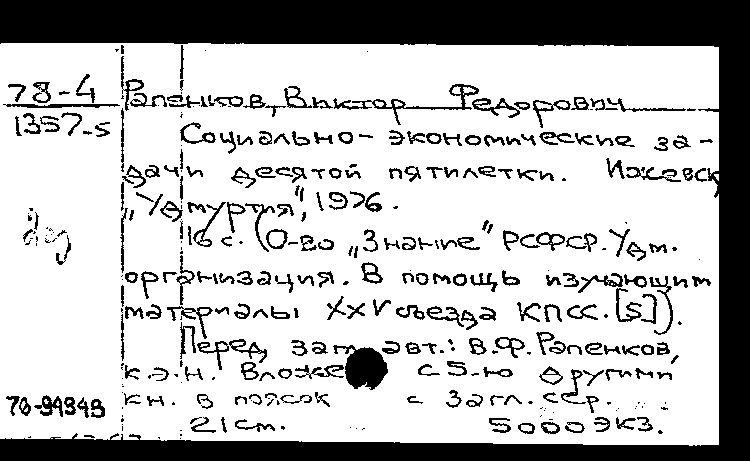 78-4
1357-5
Рапенков, Виктор Федорович
Социально-экономические за-
дачи десятой пятилетки. Ижевск,
„Удмуртия", 1976.
16 с. (О-во „Знание" РСФСР. Удм.
организация. В помощь изучающим
материалы XXV съезда КПСС. [5]).
Перед загл. авт.: В.Ф. Рапенков,
к.э.н. Вложе с 5-ю другими
кн. в поясок с загл. сер.
21 см. 5000 экз.